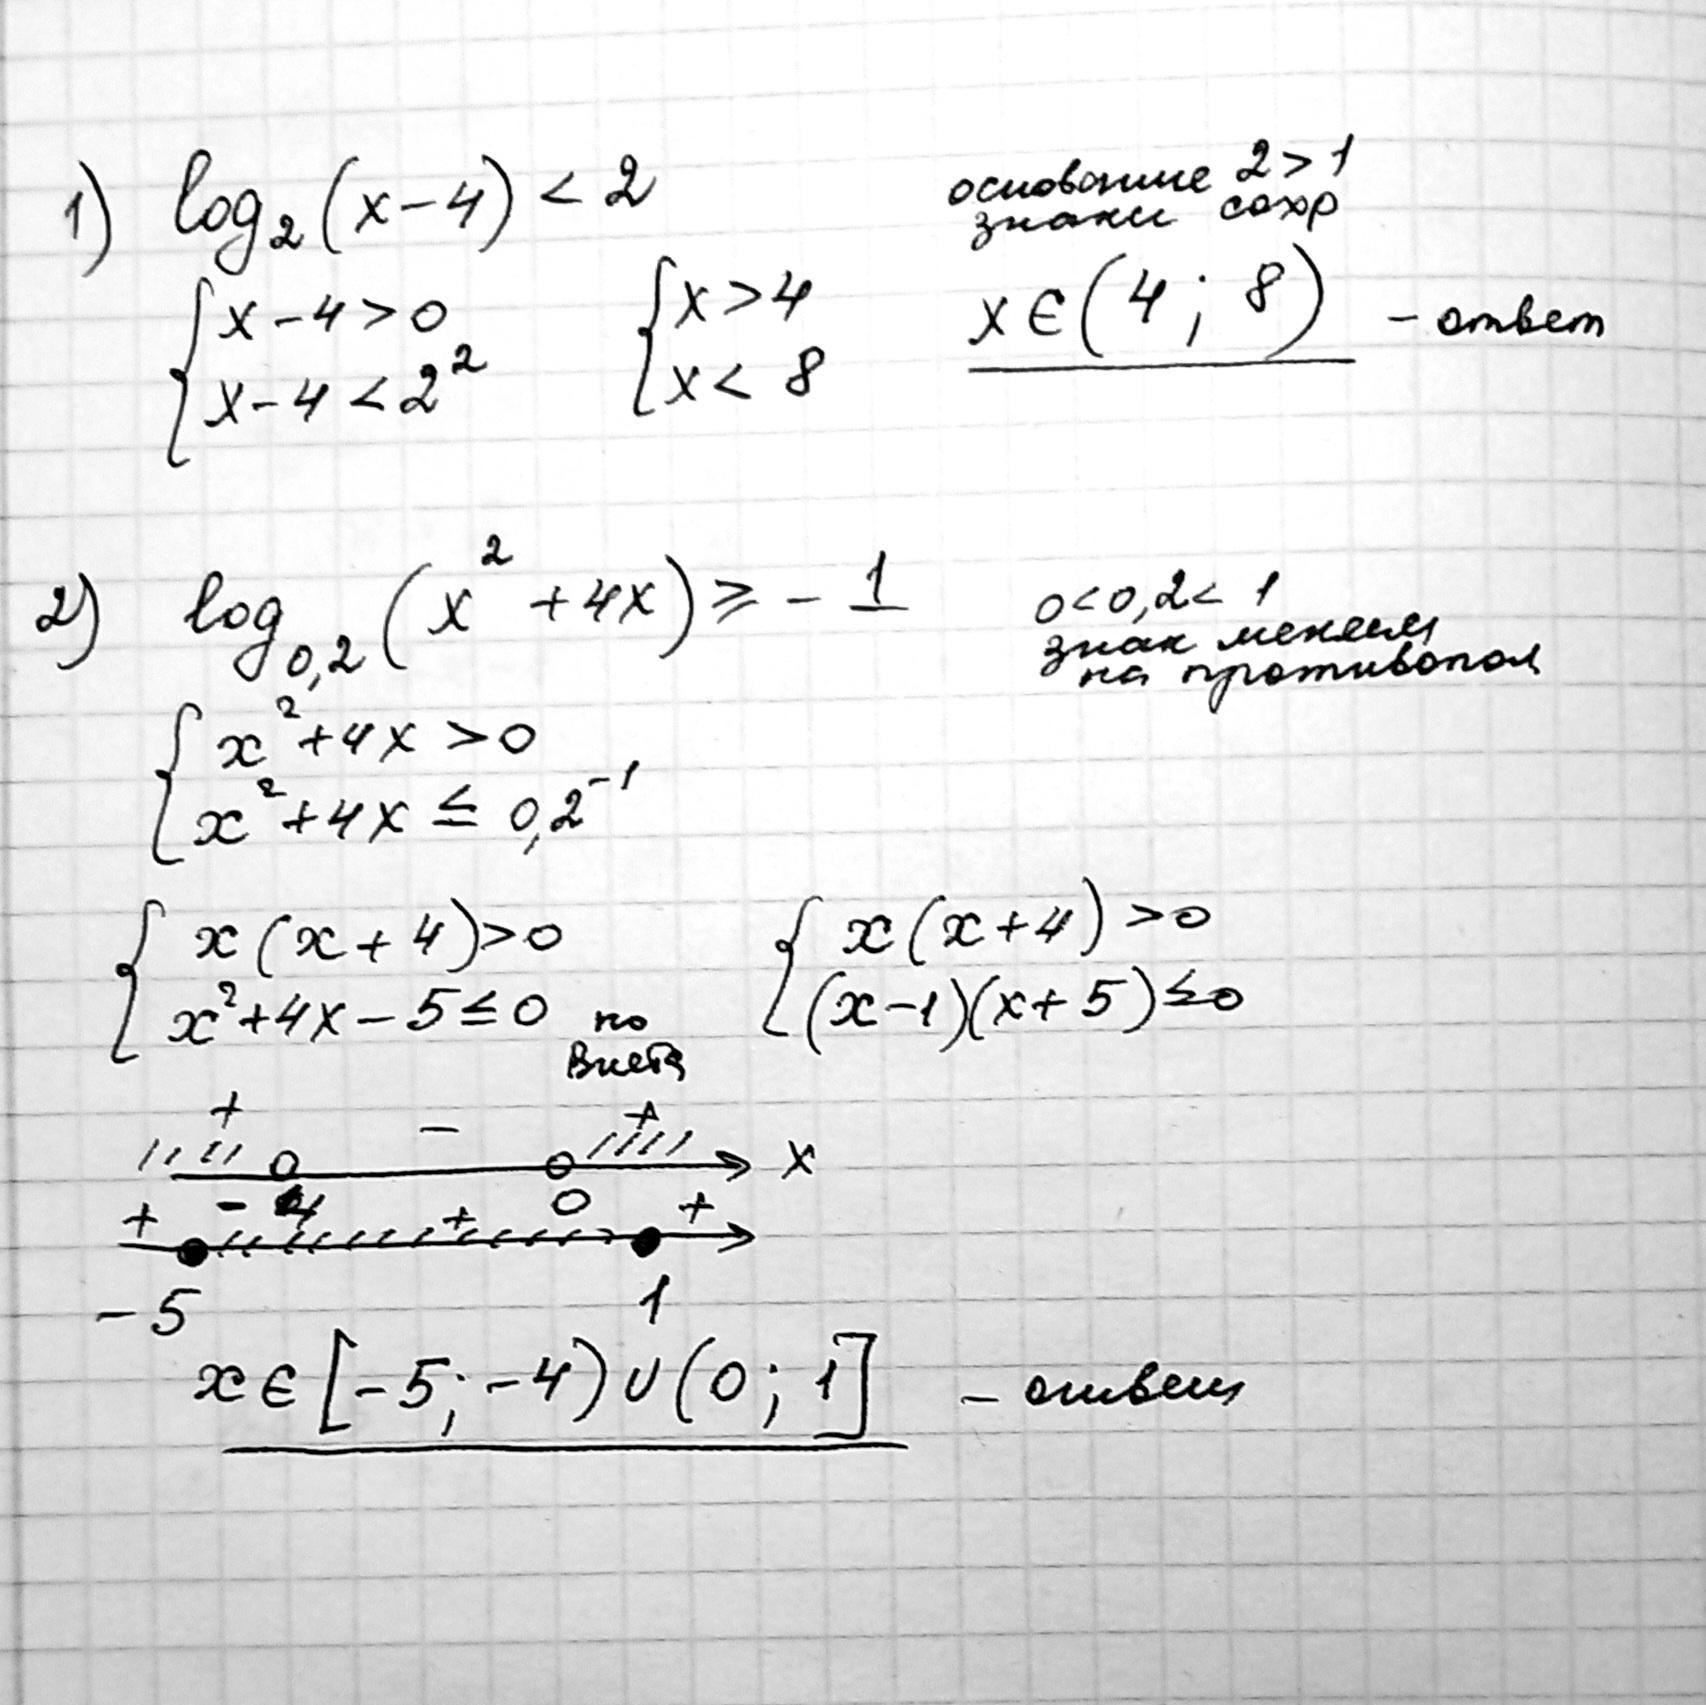 1) log₂(x-4) < 2
основание 2 > 1
знаки сохр
{ x-4 > 0
x-4 < 2²
{ x > 4
x < 8
x ∈ (4; 8) - ответ
2) log₀,₂(x² + 4x) ≥ - 1
0 < 0,2 < 1
знак меняем
на противопол
{ x² + 4x > 0
x² + 4x ≤ 0,2⁻¹
{ x(x + 4) > 0
x² + 4x - 5 ≤ 0 по
Виета
{ x(x + 4) > 0
(x-1)(x + 5) ≤ 0
+ - + x
-4 0
+ + +
-5 1
x ∈ [-5; -4) ∪ (0; 1] - ответ